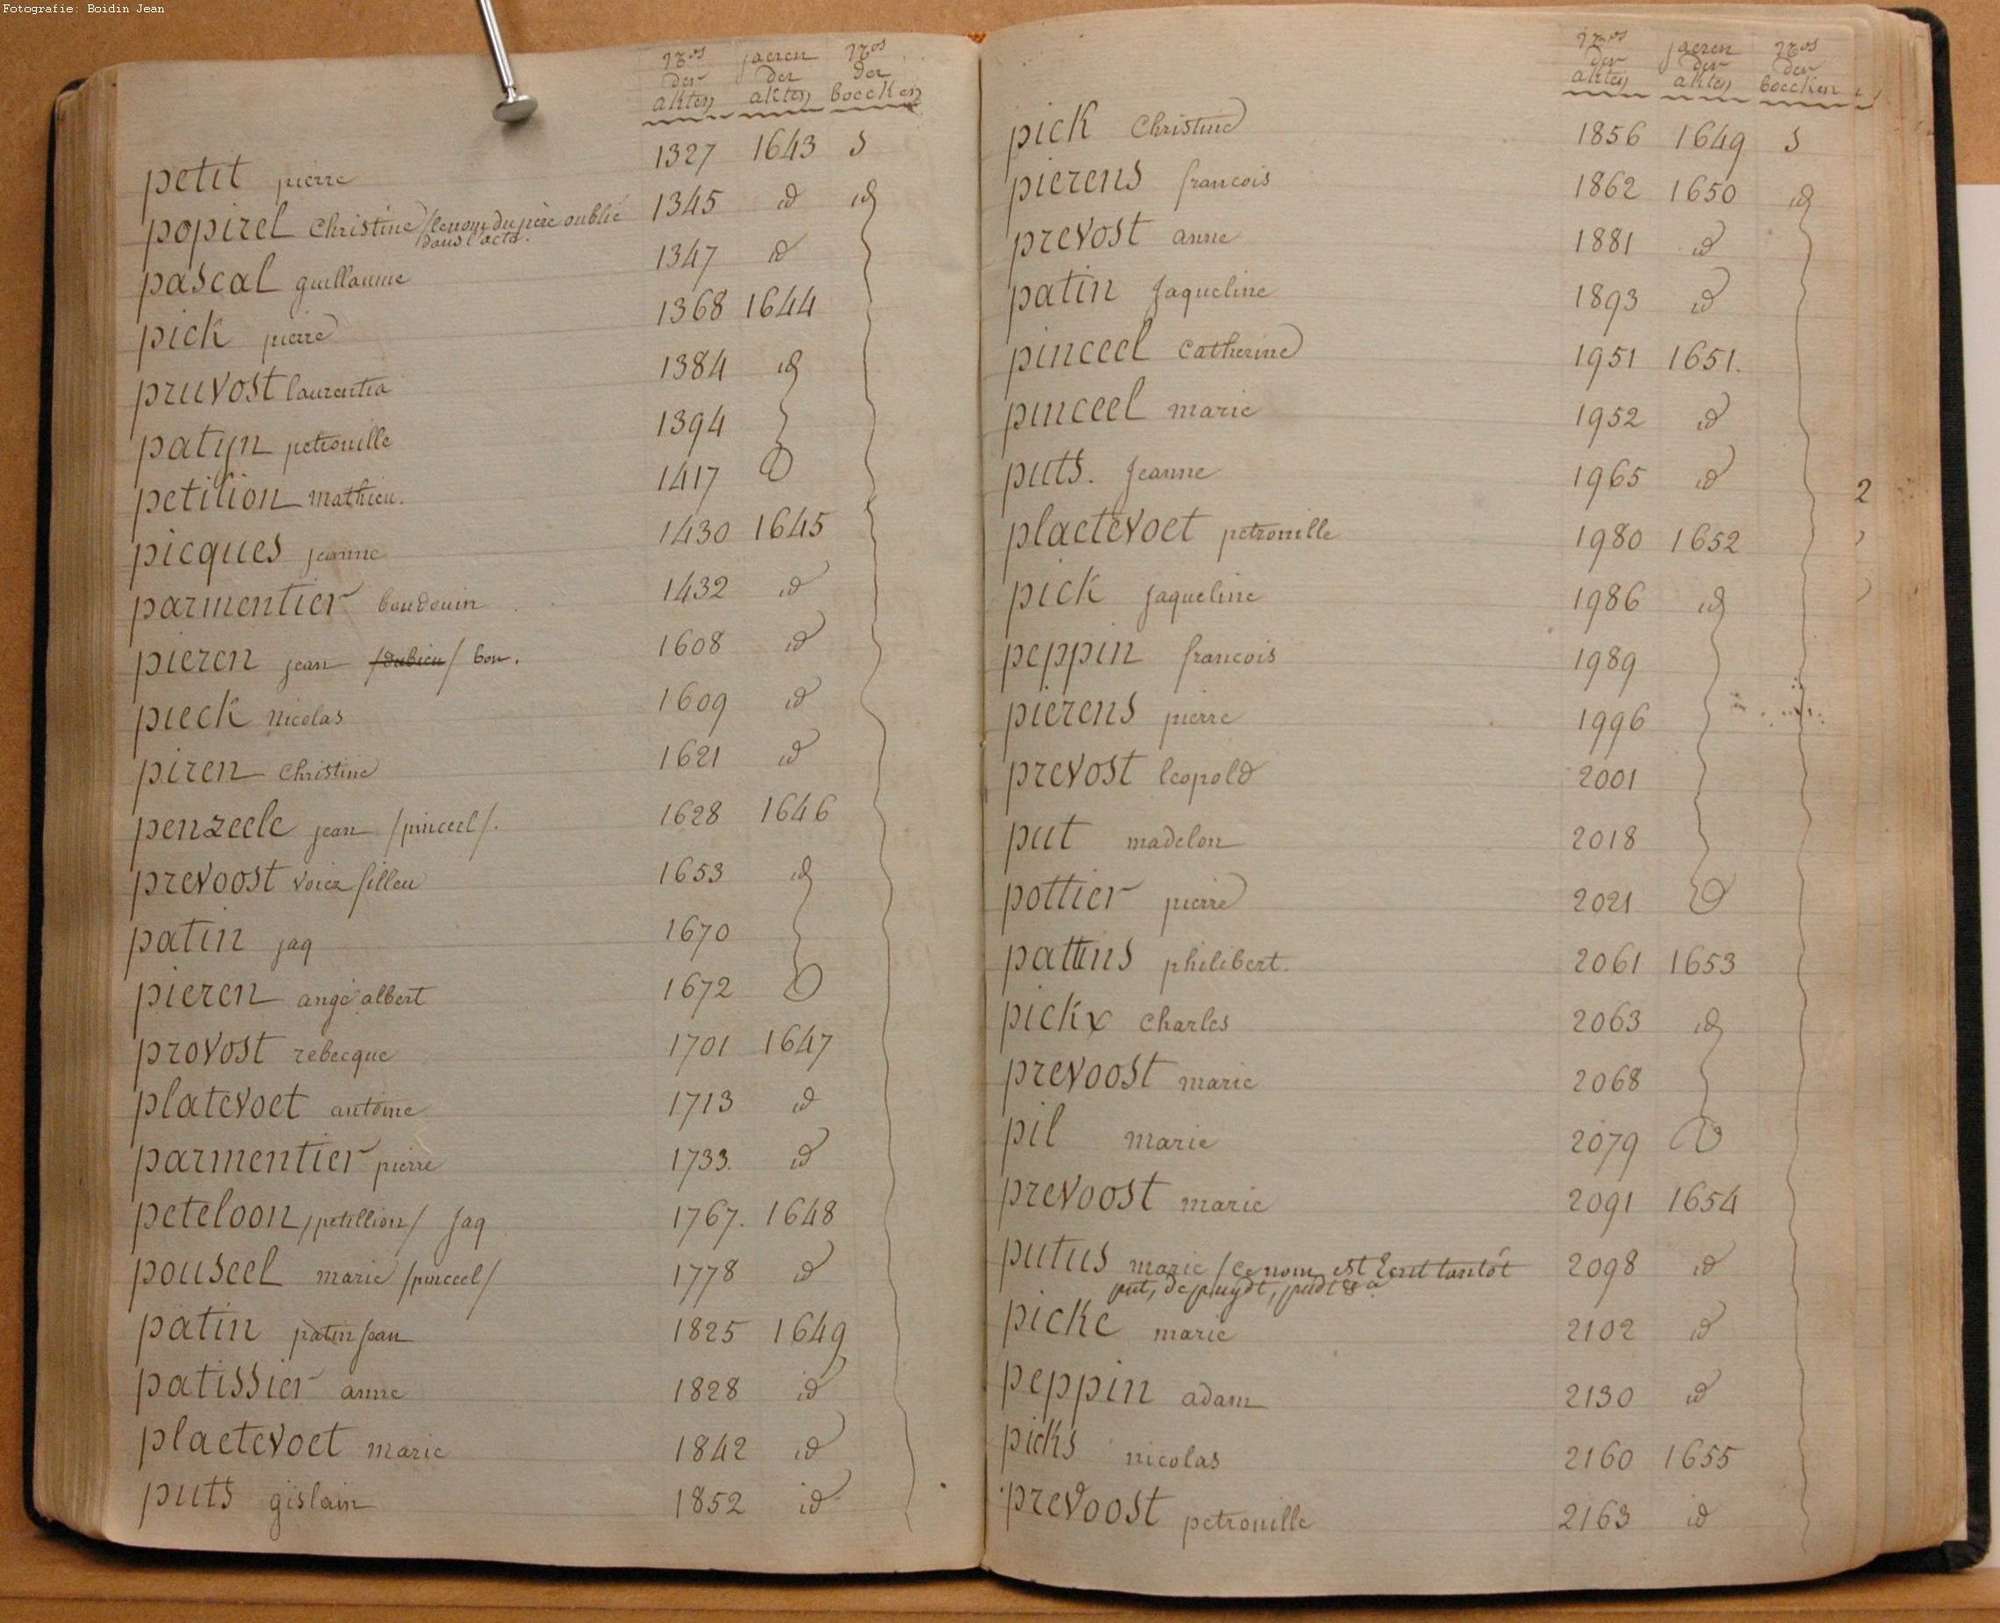 Fotografie: Boidin Jean
Nros jaeren Nros
der der der
akten akten boecken
petit pierre 1327 1643 5
popirel Christine /le nom du père oublié 1345 id id
dans l'acte.
pascal guillaume 1347 id
pick pierre 1368 1644
pruvost laurentia 1384 id
patyn petronille 1394
petilion mathieu. 1417
picques jeanne 1430 1645
parmentier boudouin 1432 id
pieren jean /dubieu/ bon. 1608 id
pieck nicolas 1609 id
piren Christine 1621 id
penzeele jean /pinceel/. 1628 1646
prevoost voiez filleu 1653 id
patin jaq 1670
pieren ange albert 1672
provost rebecque 1701 1647
platevoet antoine 1713 id
parmentier pierre 1733. id
peteloon /petillion/ jaq 1767. 1648
pouseel marie /pinceel/ 1778 id
patin patin jean 1825 1649
patissier anne 1828 id
plaetevoet marie 1842 id
puts gislain 1852 id
Nros jaeren Nros
der der der
akten akten boecken
pick Christine 1856 1649 5
pierens francois 1862 1650 id
prevost anne 1881 id
patin jaqueline 1893 id
pinceel Catherine 1951 1651.
pinceel marie 1952 id
puts. jeanne 1965 id
2
plaetevoet petronille 1980 1652
pick jaqueline 1986 id
peppin francois 1989
pierens pierre 1996
prevost leopold 2001
put madelon 2018
pottier pierre 2021
pattins philibert. 2061 1653
pickx Charles 2063 id
prevoost marie 2068
pil marie 2079
prevoost marie 2091 1654
putus marie /ce nom est Ecrit tantôt 2098 id
put, de puydt, pudt &a
picke marie 2102 id
peppin adam 2130 id
picks nicolas 2160 1655
prevoost petronille 2163 id